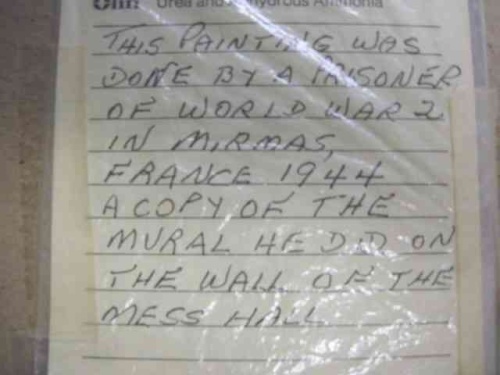 Olin Urea and Anhydrous Ammonia
THIS PAINTING WAS
DONE BY A PRISONER
OF WORLD WAR 2
IN MIRMAS,
FRANCE 1944
A COPY OF THE
MURAL HE DID ON
THE WALL OF THE
MESS HALL